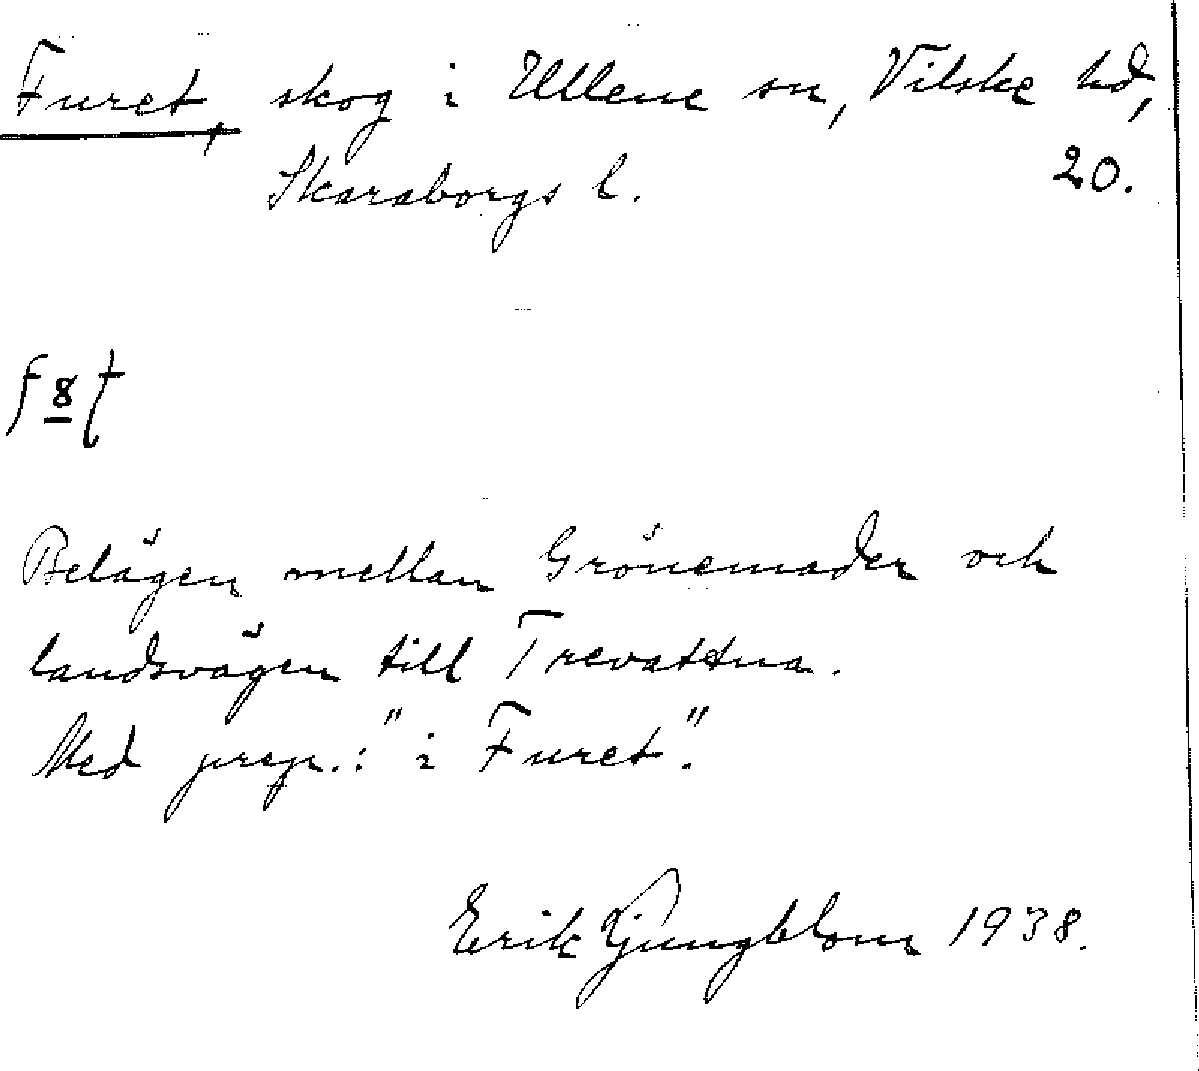 Furet, skog i Ullene sn, Vilske hd,
Skaraborgs l. 20.
Belägen mellan Grönemaden och
landsvägen till Trevattna.
Med prep.: "i Furet".
Erik Ljungblom 1938.